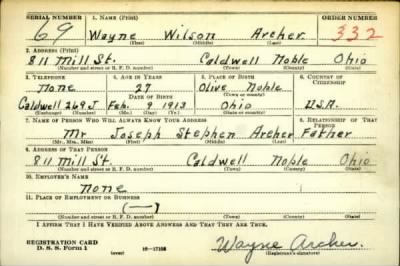 SERIAL NUMBER 1. NAME (Print) ORDER NUMBER
69 Wayne Wilson Archer 332
(First) (Middle) (Last)
2. ADDRESS (Print)
811 Mill St. Caldwell Noble Ohio
(Number and street or R. F. D. number) (Town) (County) (State)
3. TELEPHONE 4. AGE IN YEARS 5. PLACE OF BIRTH 6. COUNTRY OF CITIZENSHIP
None 27 Olive Noble
DATE OF BIRTH (Town or county)
Caldwell 269 J Feb. 9 1913 Ohio U.S.A.
(Exchange) (Number) (Mo.) (Day) (Yr.) (State or country)
7. NAME OF PERSON WHO WILL ALWAYS KNOW YOUR ADDRESS 8. RELATIONSHIP OF THAT PERSON
Mr Joseph Stephen Archer Father
(Mr., Mrs., Miss) (First) (Middle) (Last)
9. ADDRESS OF THAT PERSON
811 Mill St. Caldwell Noble Ohio
(Number and street or R. F. D. number) (Town) (County) (State)
10. EMPLOYER'S NAME
None
11. PLACE OF EMPLOYMENT OR BUSINESS
(—)
(Number and street or R. F. D. number) (Town) (County) (State)
I AFFIRM THAT I HAVE VERIFIED ABOVE ANSWERS AND THAT THEY ARE TRUE.
REGISTRATION CARD
D. S. S. Form 1 (over) 16—17105 Wayne Archer.
(Registrant's signature)